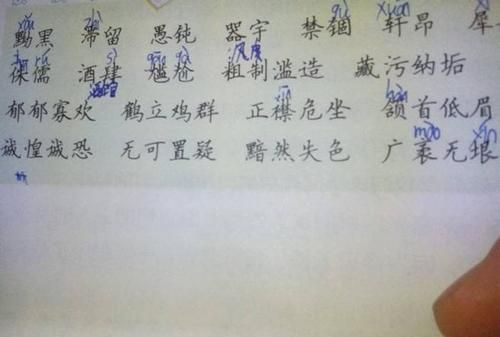 yǒu zhì gù xuān
黝黑 滞留 愚钝 器宇 禁锢 轩昂 犀
rú sì gān gà 风度
侏儒 酒肆 尴尬 粗制滥造 藏污纳垢
jīn hàn
郁郁寡欢 鹤立鸡群 正襟危坐 颔首低眉
mào yín
诚惶诚恐 无可置疑 黯然失色 广袤无垠